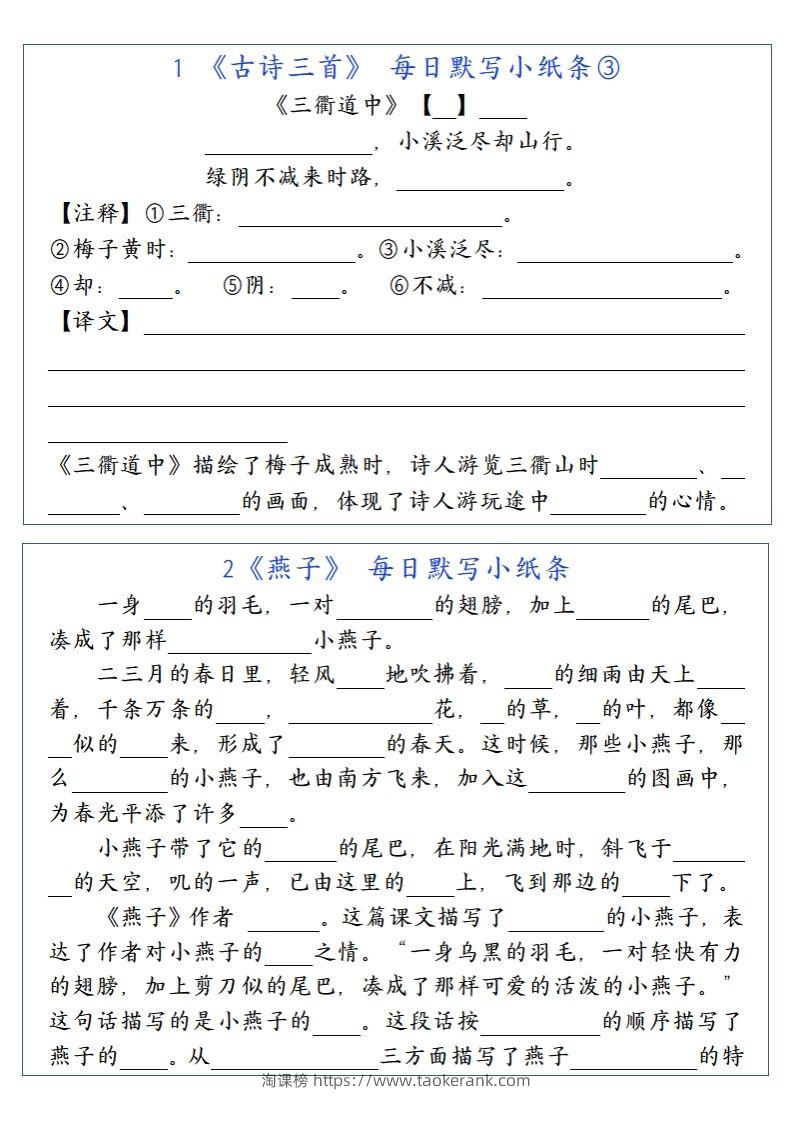 1 《古诗三首》 每日默写小纸条③
《三衢道中》【__】____
______________，小溪泛尽却山行。
绿阴不减来时路，______________。
【注释】①三衢：______________________。
②梅子黄时：______________。③小溪泛尽：__________________。
④却：____。 ⑤阴：____。 ⑥不减：____________________。
【译文】__________________________________________________
__________________________________________________________
__________________________________________________________
____________________
《三衢道中》描绘了梅子成熟时，诗人游览三衢山时________、__
______、________的画面，体现了诗人游玩途中________的心情。
2《燕子》 每日默写小纸条
一身____的羽毛，一对________的翅膀，加上______的尾巴，
凑成了那样____________小燕子。
二三月的春日里，轻风____地吹拂着，____的细雨由天上____
着，千条万条的____，____________花，__的草，__的叶，都像__
__似的____来，形成了________的春天。这时候，那些小燕子，那
么________的小燕子，也由南方飞来，加入这________的图画中，
为春光平添了许多____。
小燕子带了它的______的尾巴，在阳光满地时，斜飞于______
__的天空，叽的一声，已由这里的____上，飞到那边的____下了。
《燕子》作者 ______。这篇课文描写了________的小燕子，表
达了作者对小燕子的____之情。“一身乌黑的羽毛，一对轻快有力
的翅膀，加上剪刀似的尾巴，凑成了那样可爱的活泼的小燕子。”
这句话描写的是小燕子的____。这段话按__________的顺序描写了
燕子的____。从______________三方面描写了燕子__________的特
淘课榜 https://www.taokerank.com